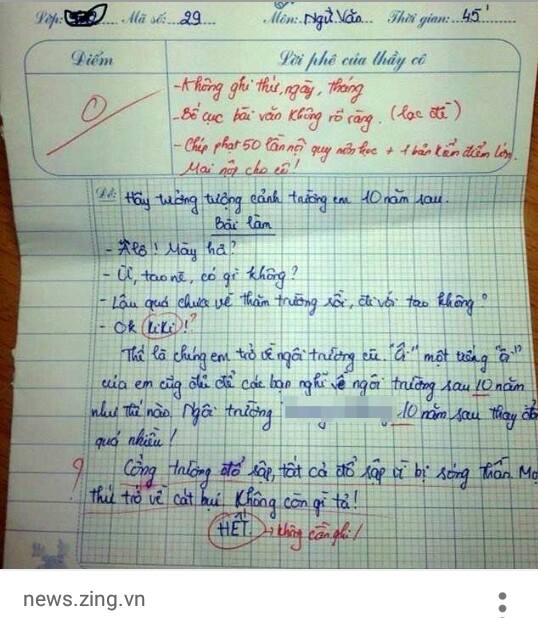 Lớp: Mã số: 29 Môn: Ngữ Văn Thời gian: 45'
Điểm Lời phê của thầy cô
0
- Không ghi thứ, ngày, tháng
- Bố cục bài văn không rõ ràng. (lạc đề)
- Chép phạt 50 lần nội quy môn học + 1 bản kiểm điểm lớn.
Mai nộp cho cô!
Đề: Hãy tưởng tượng cảnh trường em 10 năm sau.
Bài làm
- Alô! Mày hả?
- Ừ, tao nè, có gì không?
- Lâu quá chưa về thăm trường rồi, đi với tao không?
- Ok kiki!?
Thế là chúng em trở về ngôi trường cũ. "Á" một tiếng "á"
của em cũng đủ để các bạn nghĩ về ngôi trường sau 10 năm
như thế nào. Ngôi trường 10 năm sau thay đổi
quá nhiều!
? Cổng trường đổ sập, tất cả đổ sập vì bị sóng thần. Mọi
thứ trở về cát bụi. Không còn gì tả!
HẾT. → không cần ghi!
news.zing.vn